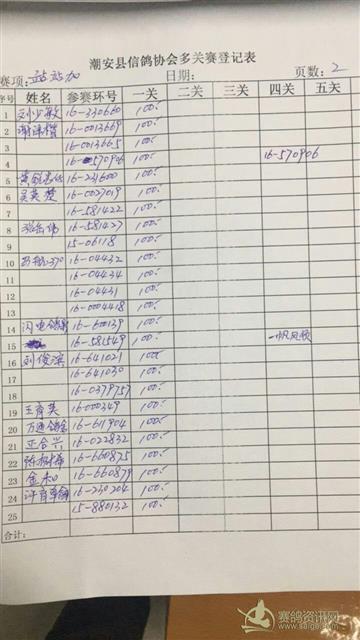 潮安县信鸽协会多关赛登记表
赛项: 站站加 日期: 页数: 2
序号 姓名 参赛环号 一关 二关 三关 四关 五关
1 刘少敏 16-330660 100
2 16-0013669 100
3 16-0013665 100
4 16-570906 100 16-570906
5 16-231600 100
6 吴英楚 16-0027019 100
7 16-581422 100
8 16-581427 100
9 15-06118 100
10 16-04432 100
11 16-04434 100
12 16-04431 100
13 16-0004418 100
14 闪电鸽舍 16-600139 100
15 16-581549 100 一帆风顺
16 刘俊滨 16-641021 100
17 16-641030 100
18 16-0379757 100
19 王育英 16-000349 100
20 16-611904 100
21 正合兴 16-022832 100
22 16-660875 100
23 金和 16-660879 100
24 16-230204 100
25 15-880132 100
合计:
赛鸽资讯网
www.saige.com